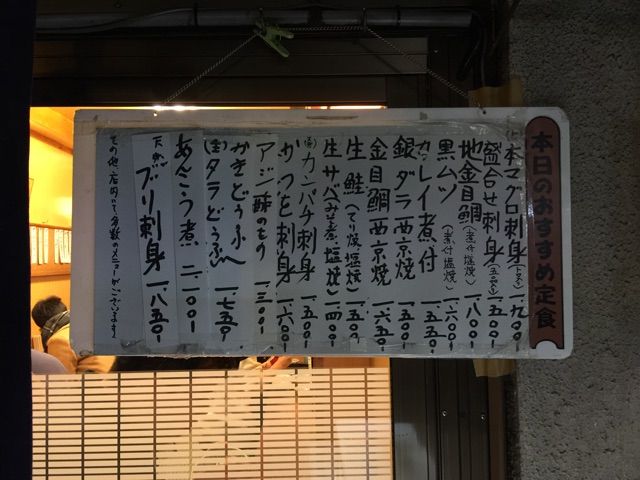 本日のおすすめ定食
本マグロ刺身(トロ入) 一、九〇〇
盛合せ刺身(五点盛) 一、五〇〇
地金目鯛(煮付 塩焼) 一、八〇〇
黒ムツ(煮付 塩焼) 一、六〇〇
カレイ煮付 一、五五〇
銀ダラ西京焼 一、五〇〇
金目鯛西京焼 一、六五〇
生鮭(てり焼、塩焼) 一、五〇〇
生サバ(みそ煮、塩焼) 一、四〇〇
カンパチ刺身 一、五〇〇
かつを刺身 一、六〇〇
アジ酢のもの 一、三〇〇
かきどうふ
タラどうふ 一、七五〇
あんこう煮 二、一〇〇
天然ブリ刺身 一、八五〇
その他、店内にて多数のメニューがございます